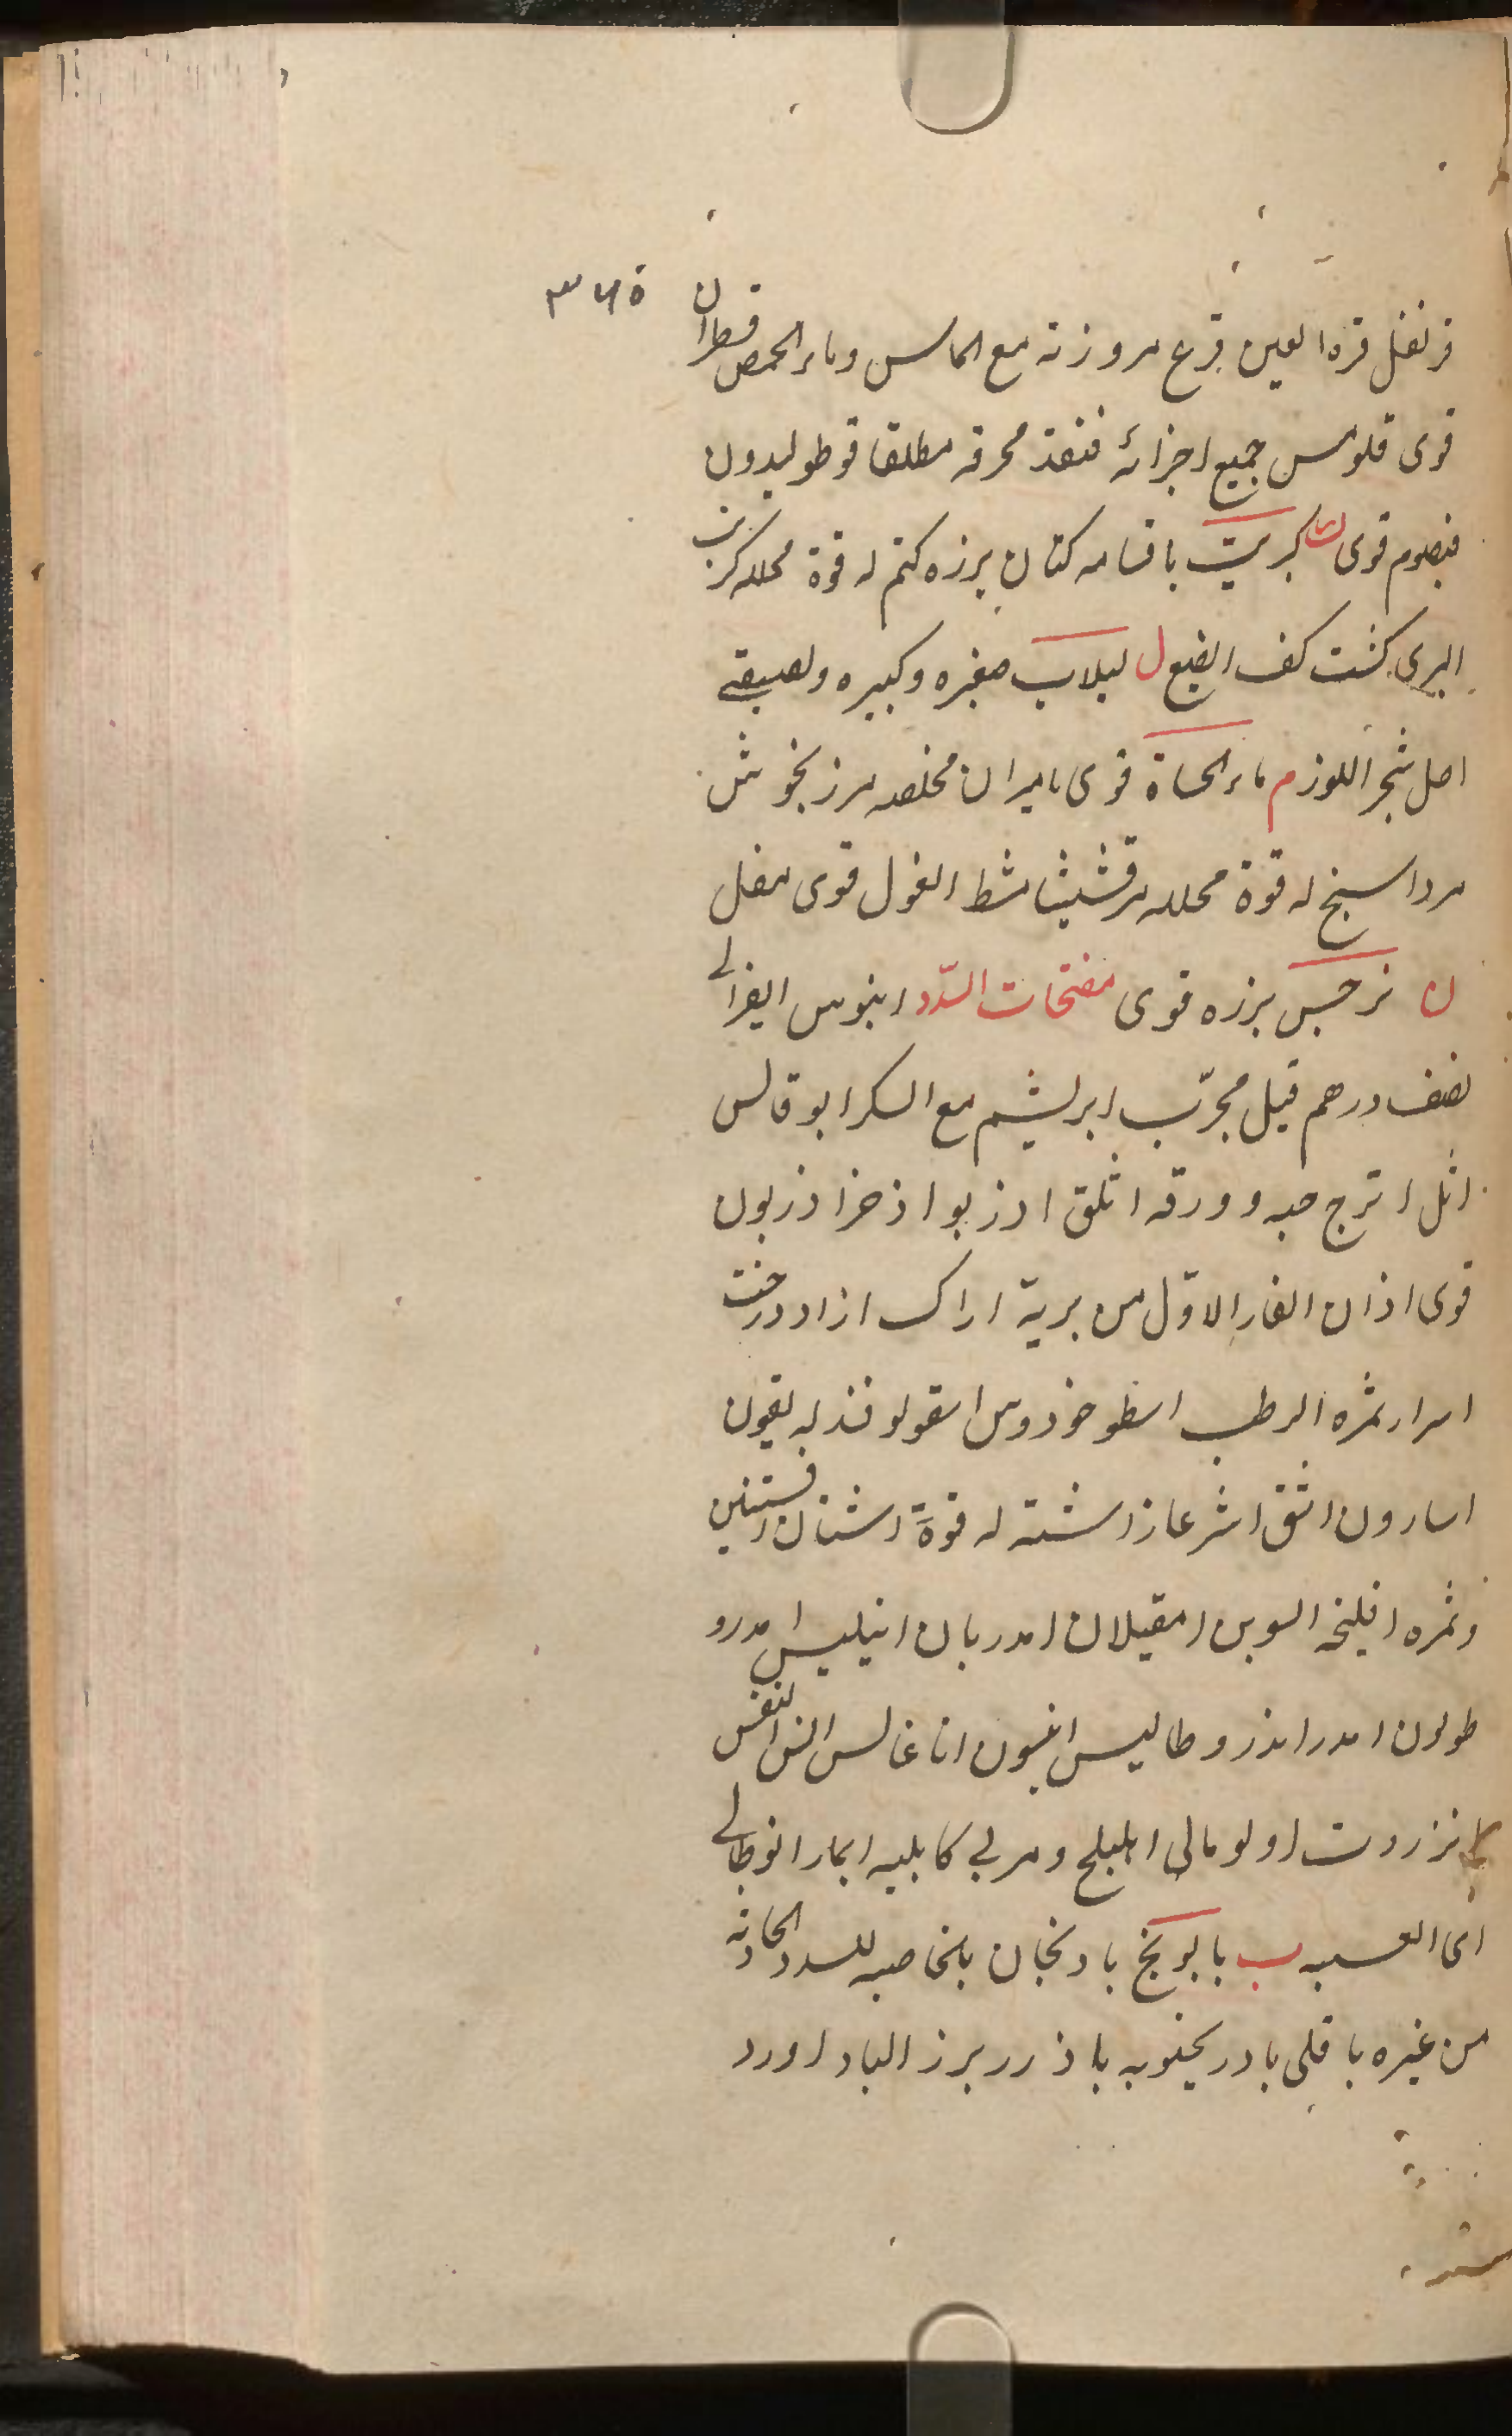 ٣٦٥
قرنفل قرة العين قرع مروزته مع الماس وماء الحمص قطران
قوى قلومس جميع اجزائه قنقذ محرقه مطلقا قوطوليدون
قيصوم قوى ك كبريت باقسامه كتان بزره كتم له قوة محلله كرنب
البرى كشت كف الضبع ل لبلاب صغيره وكبيره ولصيقى
اصل شجر اللوز م ماء الحماة قوى ماميران مخلصه مرزنجوش
مرداسنج له قوة محلله مرقشيثا مشط الغول قوى مقل
ن نرجس بزره قوى مفتحات السّدد ابنوس الغزالى
نصف درهم قيل مجرّب ابريشم مع السكر ابوقالس
اثل اترج حبه وورقه اثلق ادزبو اذخر اذربون
قوى اذان الفار الاوّل من برية اراك ازاددرخت
اسرار ثمره الرطب اسطوخودوس اسقولوقندريقيون
اسارون اشق اشرعاز اشنه له قوّة اشنان افسنتين
وثمره افليخه السوس امقيلان امدريان انيليس امدرو
طولون امدر اندروطاليس انيسون اناغالس النفس
انزروت اولومالى اهليلج ومربى كابليه ايمارانوطالى
اى ب بابونج باذنجان بالخاصيه للسدد الحادثه
من غيره باقلى بادرنجبويه باذرر بزر الباداورد